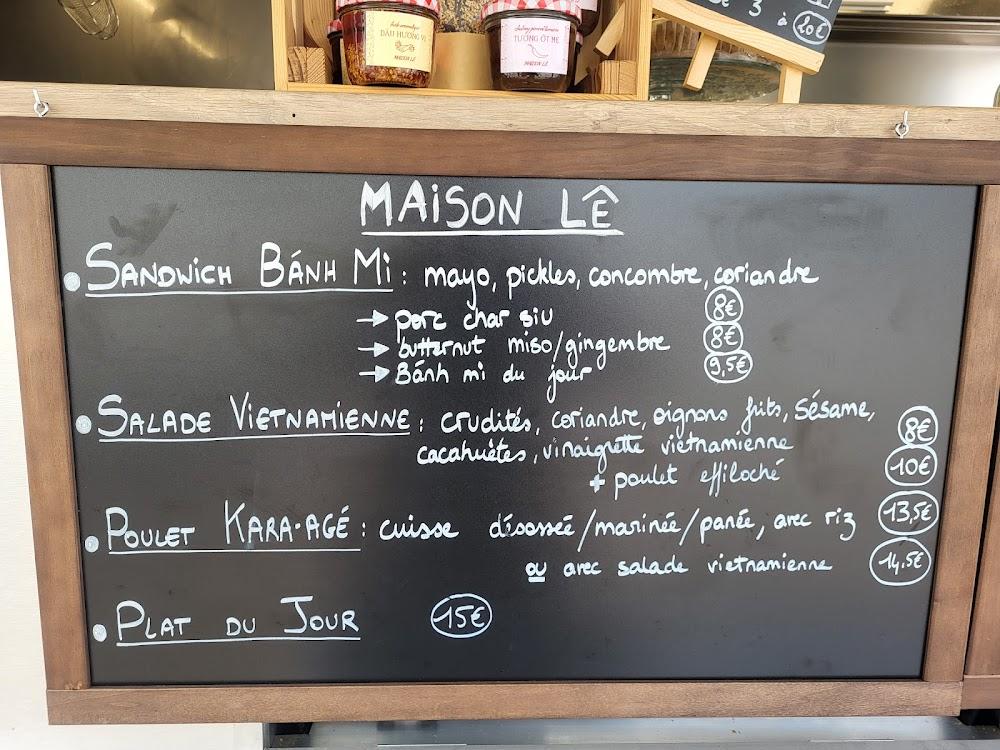 huile aromatique
DẦU HƯƠNG VỊ
MAISON LÊ
TƯƠNG ỚT MẸ
MAISON LÊ
3 à 20€
MAISON LÊ
SANDWICH BÁNH MI : mayo, pickles, concombre, coriandre
→ porc char siu 8€
→ butternut miso/gingembre 8€
→ Bánh mi du jour 9,5€
SALADE VIETNAMIENNE : crudités, coriandre, oignons frits, sésame,
cacahuètes, vinaigrette vietnamienne 8€
+ poulet effiloché 10€
POULET KARA-AGÉ : cuisse désossée/marinée/panée, avec riz 13,5€
ou avec salade vietnamienne 14,5€
PLAT DU JOUR 15€